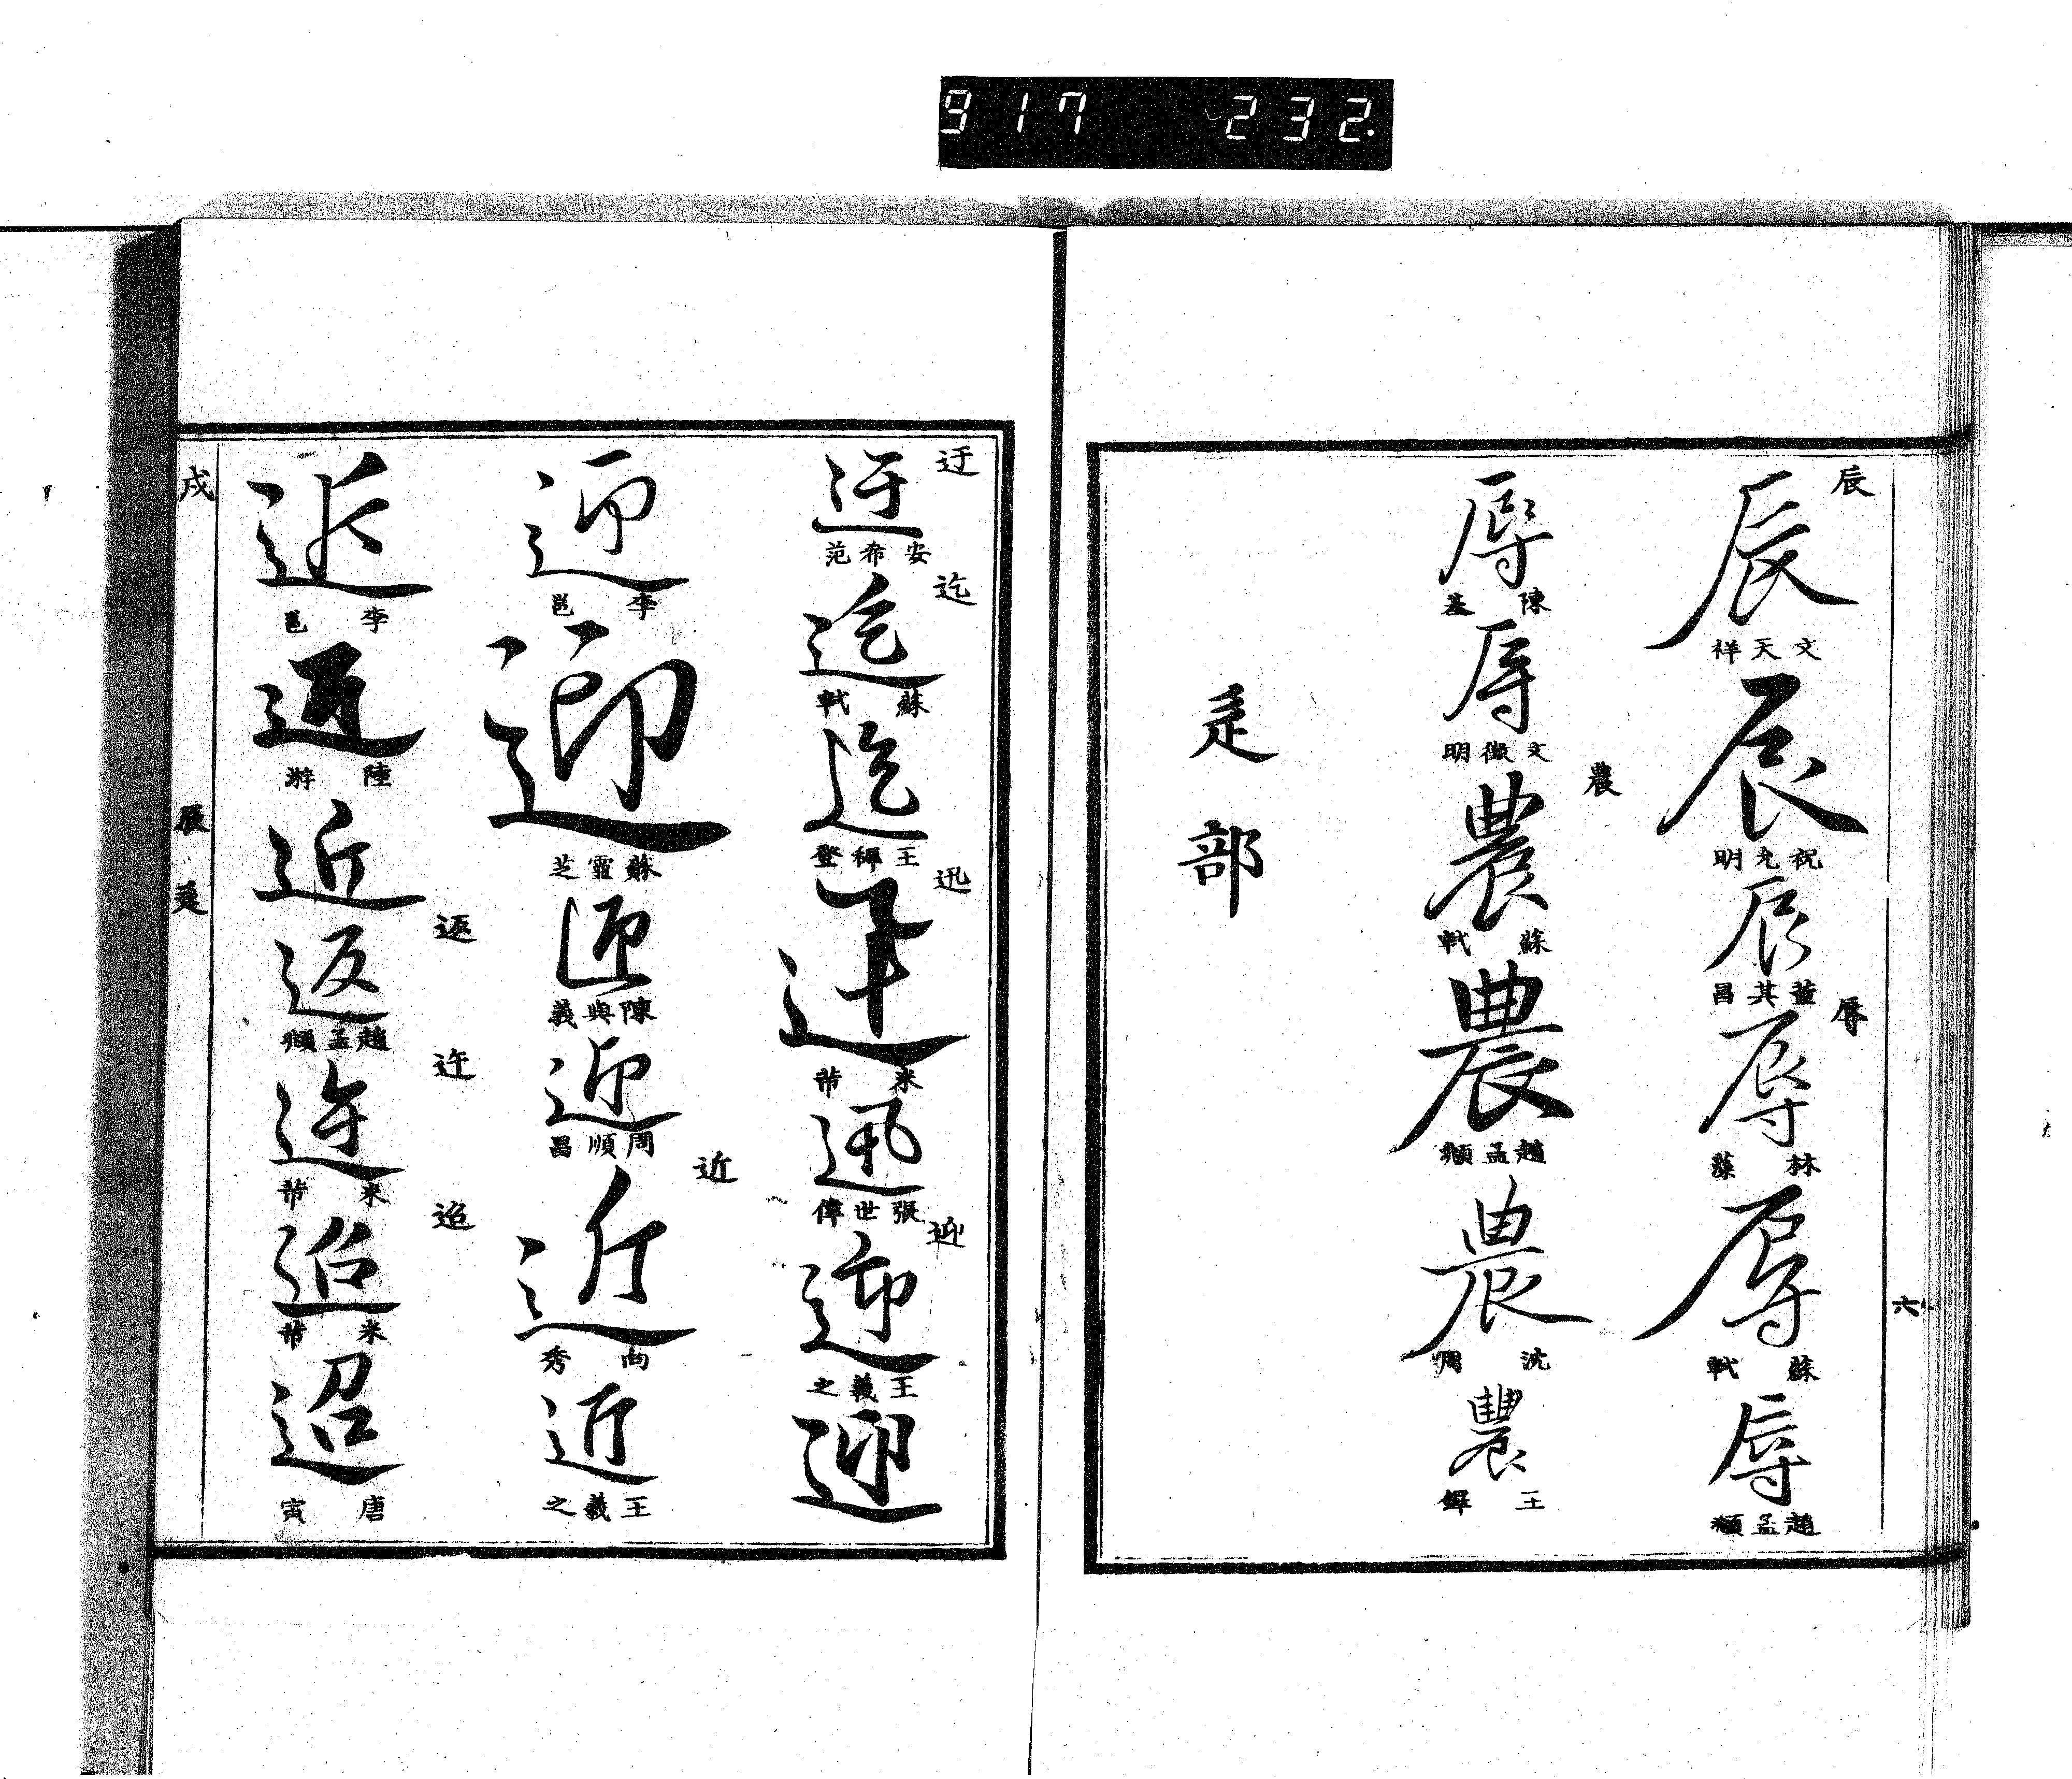 917 232
六
辰
辰
文天祥
辰
祝允明
辰
董其昌
辱
辱
林藻
辱
蘇軾
辱
趙孟頫
辱
陳基
辱
文徵明
農
農
蘇軾
農
趙孟頫
農
沈周
農
王鐸
辵部
迂
迂
安希范
迄
迄
蘇軾
迄
王穉登
迅
迅
米芾
迅
張世偉
迎
迎
王羲之
迎
迎
李邕
迎
蘇靈芝
迎
陳與義
迎
周順昌
近
近
向秀
近
王羲之
近
李邕
近
陸游
近
返
返
趙孟頫
迕
迕
米芾
迨
迨
米芾
迢
唐寅
戌
辰
辵